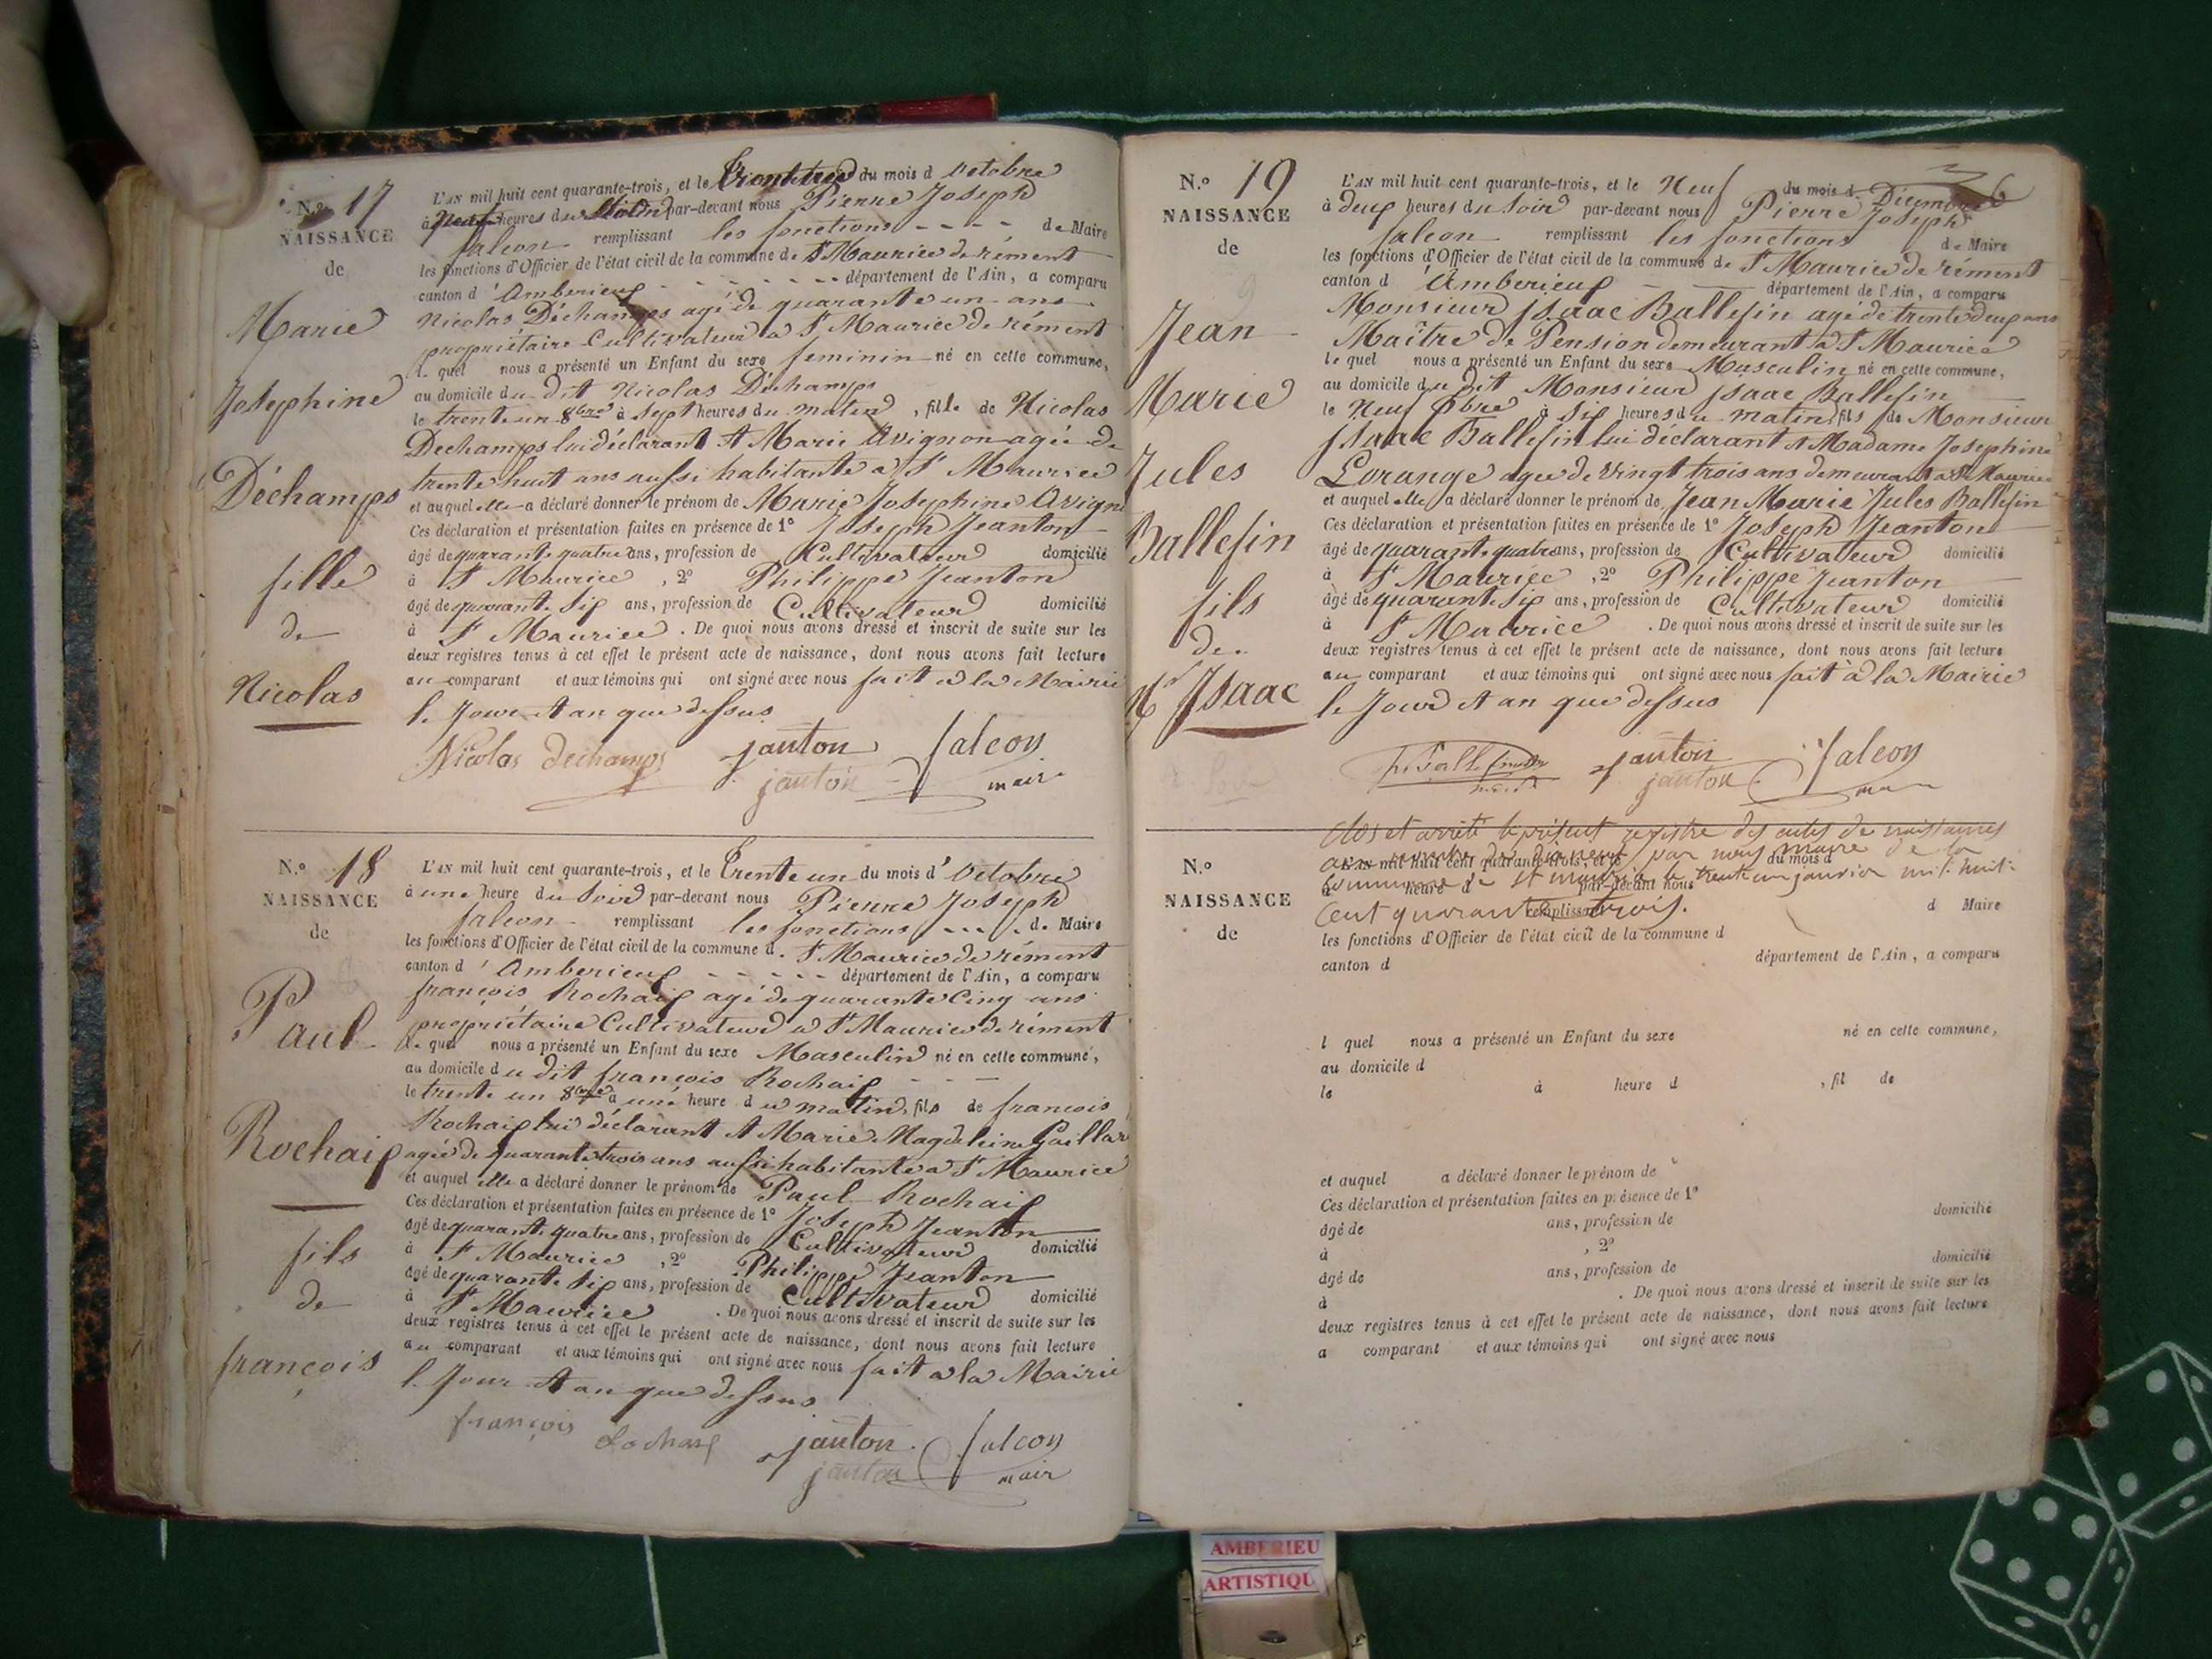 N.º 17
NAISSANCE
de
Marie
Josephine
Déchamps
fille
de
Nicolas
L'AN mil huit cent quarante-trois, et le trente un du mois d Octobre
à neuf heures du matin par-devant nous Pierre Joseph
falcon remplissant les fonctions - - - - de Maire
les fonctions d'Officier de l'état civil de la commune de St Maurice de rément
canton d'Amberieux - - - - - - département de l'Ain, a comparu
Nicolas Déchamps agé de quarante un ans
propriétaire Cultivateur a St Maurice de rément
le quel nous a présenté un Enfant du sexe feminin né en cette commune,
au domicile du dit Nicolas Déchamps
le trente un 8bre à Sept heures du matin, fille de Nicolas
Dechamps lui déclarant et Marie Avignon agée de
trente huit ans aussi habitante a St Maurice
et auquel elle a déclaré donner le prénom de Marie Josephine Avign
Ces déclaration et présentation faites en présence de 1º Joseph Jeanton
âgé de quarante quatre ans, profession de Cultivateur domicilié
à St Maurice , 2º Philippe Jeanton
âgé de quarante Six ans, profession de Cultivateur domicilié
à St Maurice . De quoi nous avons dressé et inscrit de suite sur les
deux registres tenus à cet effet le présent acte de naissance, dont nous avons fait lecture
au comparant et aux témoins qui ont signé avec nous fait a la Mairie
le Jour et an que dessus
Nicolas dechamps janton falcon
janton mair
N.º 18
NAISSANCE
de
Paul
Rochaix
fils
de
françois
L'AN mil huit cent quarante-trois, et le trente un du mois d'Octobre
à une heure du Soir par-devant nous Pierre Joseph
falcon remplissant les fonctions - - - . de Maire
les fonctions d'Officier de l'état civil de la commune d. St Maurice de rément
canton d'Amberieux - - - - - département de l'Ain, a comparu
françois Rochaix agé de quarante Cinq ans
propriétaire Cultivateur a St Maurice de rément
le quel nous a présenté un Enfant du sexe Masculin né en cette commune,
au domicile du dit françois Rochaix - - -
le trente un 8bre à une heure du matin, fils de francois
Rochaix lui déclarant et Marie Magdeleine Gaillar
agée de quarante trois ans aussi habitante a St Maurice
et auquel elle a déclaré donner le prénom de Paul Rochaix
Ces déclaration et présentation faites en présence de 1º Joseph Jeanton
âgé de quarante quatre ans, profession de Cultivateur domicilié
à St Maurice , 2º Philippe Jeanton
âgé de quarante Six ans, profession de Cultivateur domicilié
à St Maurice . De quoi nous avons dressé et inscrit de suite sur les
deux registres tenus à cet effet le présent acte de naissance, dont nous avons fait lecture
au comparant et aux témoins qui ont signé avec nous fait a la Mairie
le Jour et an que dessus
françois Rochaix janton falcon
janton mair
N.º 19
NAISSANCE
de
Jean
Marie
Jules
Ballefin
fils
de
Mr Isaac
L'AN mil huit cent quarante-trois, et le Neuf du mois d. Décembre
à deux heures du Soir par-devant nous Pierre Joseph
falcon remplissant les fonctions de Maire
les fonctions d'Officier de l'état civil de la commune de St Maurice de rément
canton d'Amberieux - — département de l'Ain, a comparu
Monsieur Isaac Ballefin agé de trente deux ans
Maître de Pension demeurant a St Maurice
le quel nous a présenté un Enfant du sexe Masculin né en cette commune,
au domicile du dit Monsieur Isaac Ballefin
le Neuf Xbre à Six heures du matin, fils de Monsieur
Isaac Ballefin lui déclarant et Madame Josephine
Lorange agée de Vingt trois ans demeurant a St Maurice
et auquel elle a déclaré donner le prénom de Jean Marie Jules Ballefin
Ces déclaration et présentation faites en présence de 1º Joseph Jeanton
âgé de quarante quatre ans, profession de Cultivateur domicilié
à St Maurice , 2º Philippe Jeanton
âgé de quarante Six ans, profession de Cultivateur domicilié
à St Maurice . De quoi nous avons dressé et inscrit de suite sur les
deux registres tenus à cet effet le présent acte de naissance, dont nous avons fait lecture
au comparant et aux témoins qui ont signé avec nous fait à la Mairie
le Jour et an que dessus
janton falcon
janton
clos et arrêté le présent registre des actes de naissances
au nombre de dix neuf par nous maire de la
commune de St maurice le trente un janvier mil huit
cent quarante trois.
N.º
NAISSANCE
de
L'AN mil huit cent quarante-trois, et le du mois d
à heure d par-devant nous
remplissant d Maire
les fonctions d'Officier de l'état civil de la commune d
canton d département de l'Ain, a comparu
l quel nous a présenté un Enfant du sexe né en cette commune,
au domicile d
le à heure d , fil de
et auquel a déclaré donner le prénom de
Ces déclaration et présentation faites en présence de 1º
âgé de ans, profession de domicilié
à , 2º
âgé de ans, profession de domicilié
à . De quoi nous avons dressé et inscrit de suite sur les
deux registres tenus à cet effet le présent acte de naissance, dont nous avons fait lecture
a comparant et aux témoins qui ont signé avec nous
AMBERIEU
ARTISTIQU